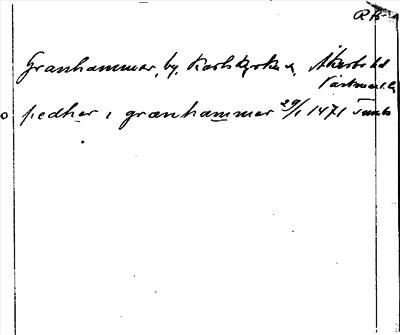 RA
Granhammar, by, Karlskyrka s, Åkerbo hd
Västmanl. l.
pedhær i grænhammar 29/1 1471